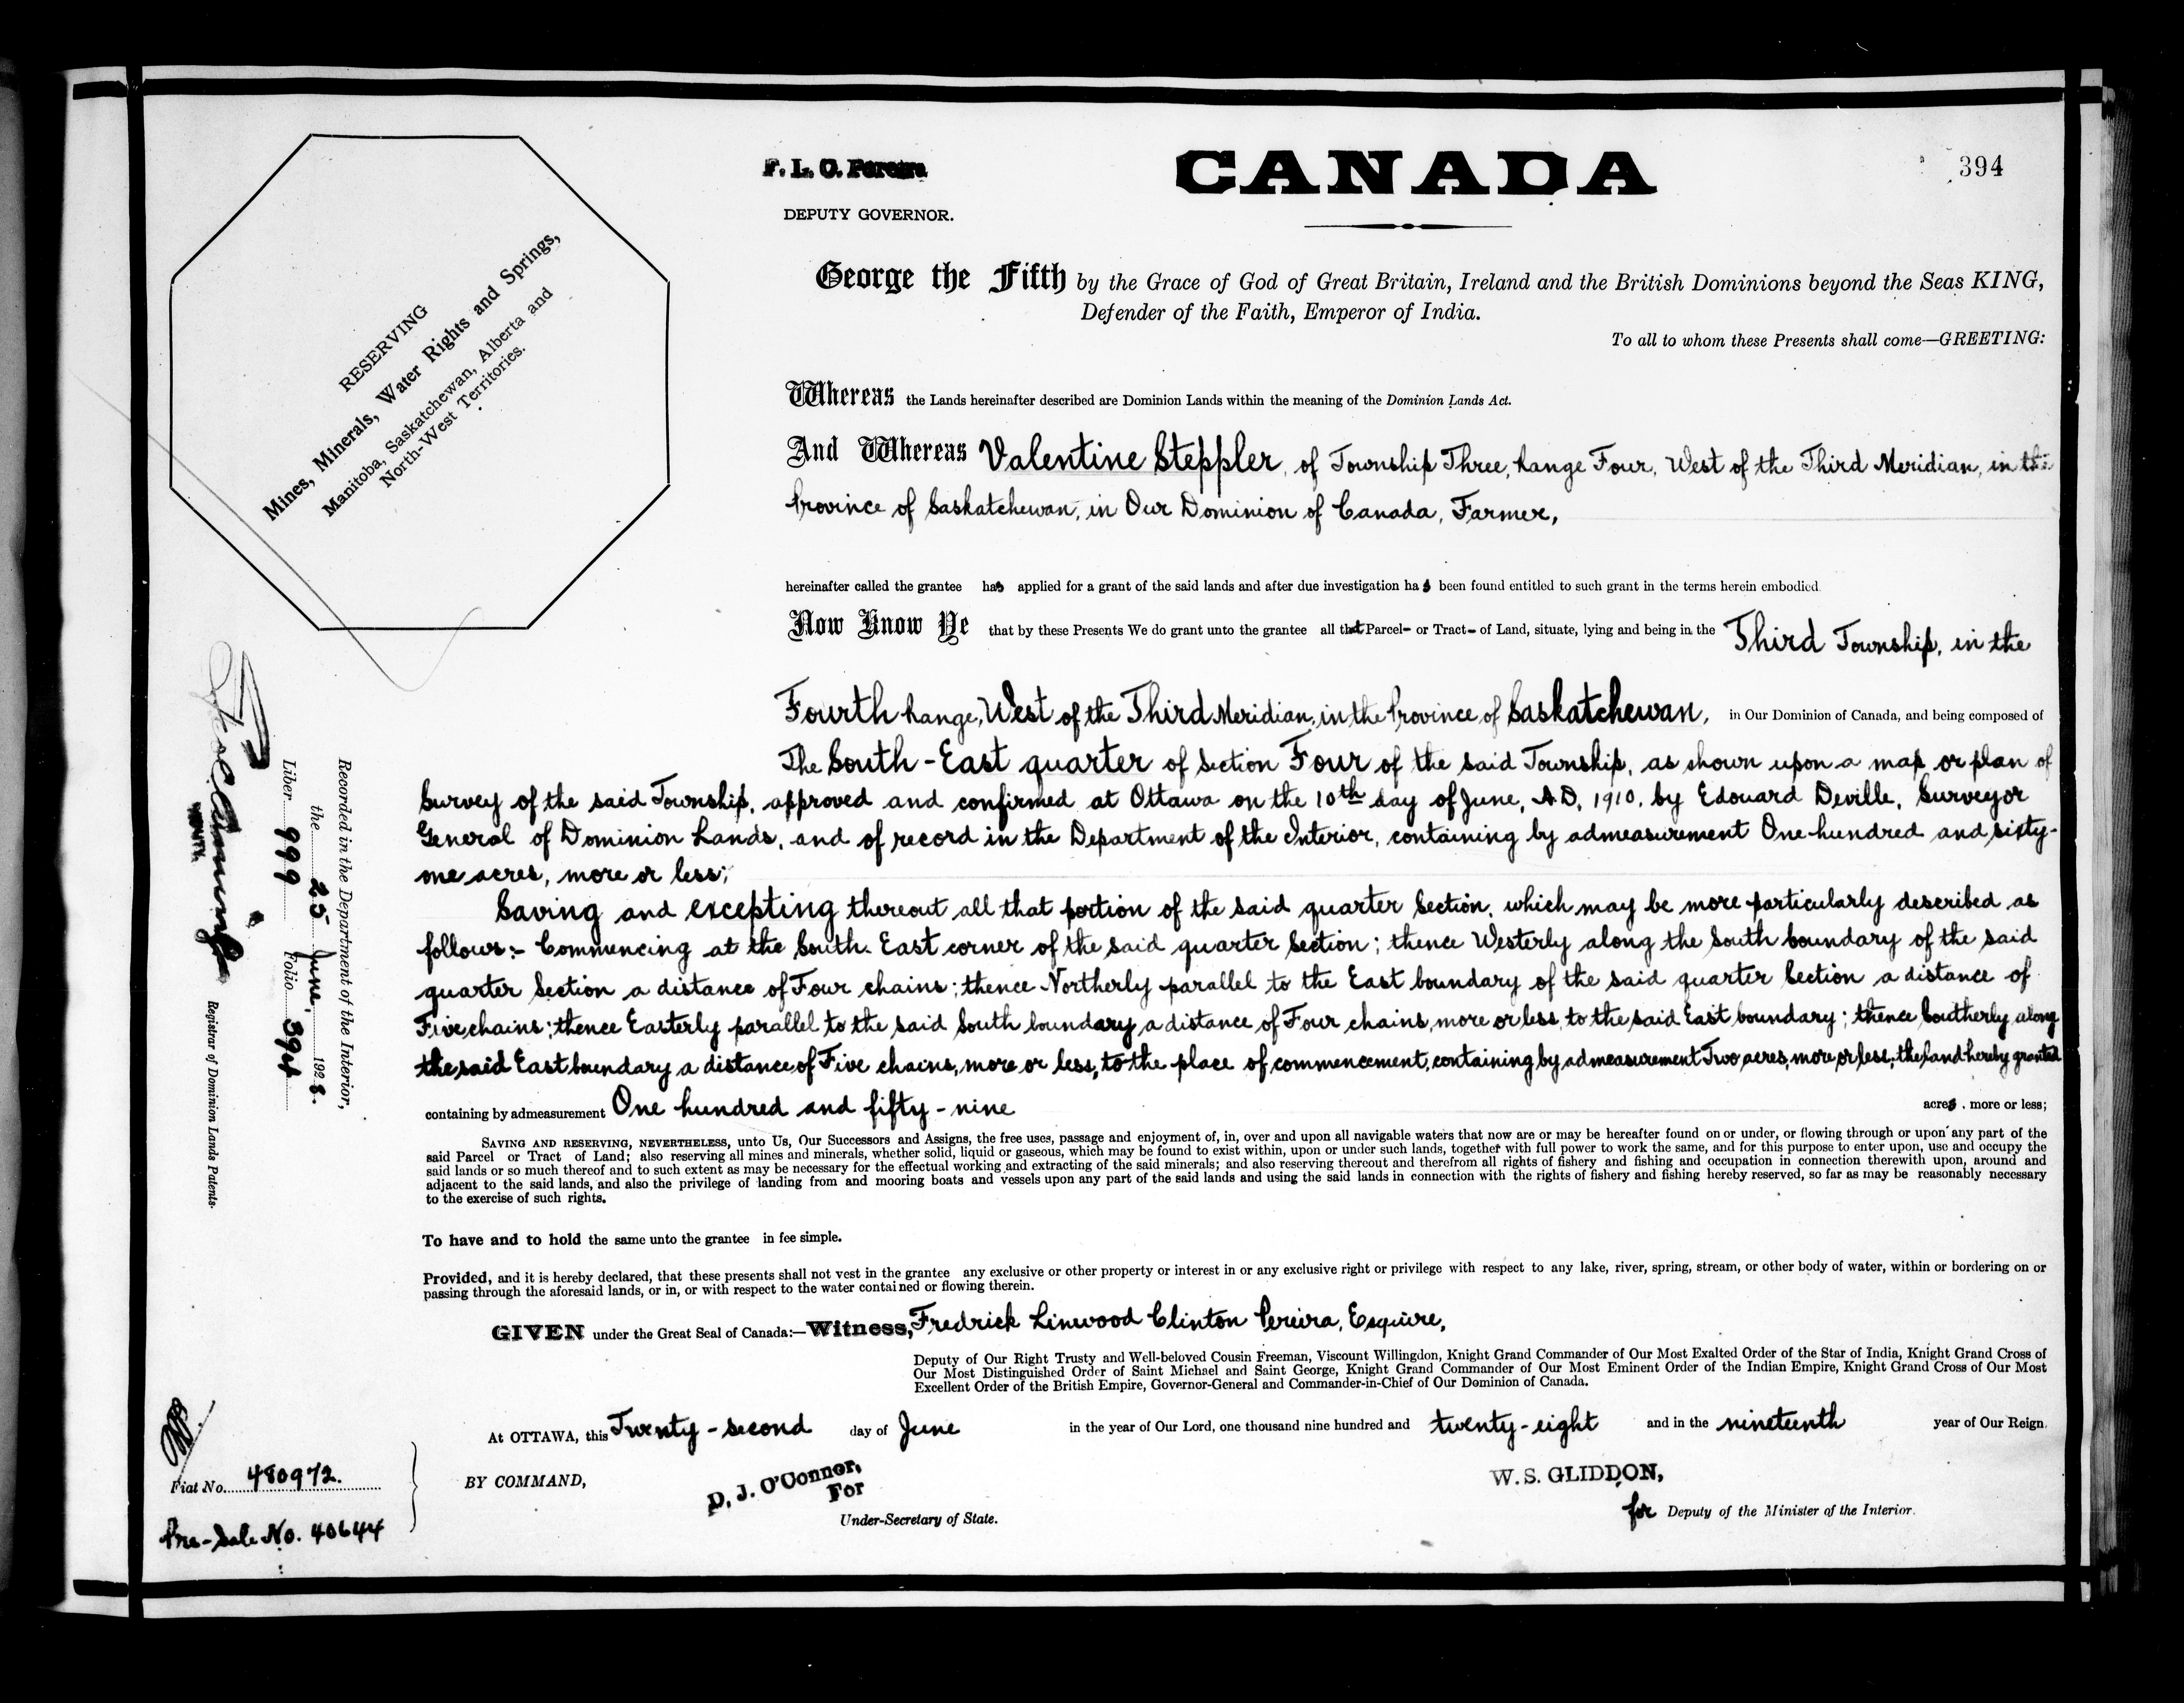 F. L. C. Pereira
DEPUTY GOVERNOR.
CANADA
394
RESERVING
Mines, Minerals, Water Rights and Springs,
Manitoba, Saskatchewan, Alberta and
North-West Territories.
George the Fifth by the Grace of God of Great Britain, Ireland and the British Dominions beyond the Seas KING,
Defender of the Faith, Emperor of India.
To all to whom these Presents shall come—GREETING:
Whereas the Lands hereinafter described are Dominion Lands within the meaning of the Dominion Lands Act.
And Whereas Valentine Steppler, of Township Three, Range Four, West of the Third Meridian, in the
Province of Saskatchewan, in Our Dominion of Canada, Farmer,
hereinafter called the grantee has applied for a grant of the said lands and after due investigation has been found entitled to such grant in the terms herein embodied.
Now Know Ye that by these Presents We do grant unto the grantee all that Parcel- or Tract- of Land, situate, lying and being in the Third Township, in the
Fourth Range, West of the Third Meridian, in the Province of Saskatchewan, in Our Dominion of Canada, and being composed of
The South-East quarter of Section Four of the said Township, as shown upon a map or plan of
Survey of the said Township, approved and confirmed at Ottawa on the 10th day of June, A.D. 1910, by Edouard Deville, Surveyor
General of Dominion Lands, and of record in the Department of the Interior, containing by admeasurement One hundred and sixty-
one acres, more or less;
Saving and excepting thereout all that portion of the said quarter Section, which may be more particularly described as
follows:- Commencing at the South-East corner of the said quarter Section; thence Westerly along the South boundary of the said
quarter Section a distance of Four chains; thence Northerly parallel to the East boundary of the said quarter Section a distance of
Five chains; thence Easterly parallel to the said South boundary a distance of Four chains, more or less, to the said East boundary; thence Southerly along
the said East boundary a distance of Five chains, more or less, to the place of commencement, containing by admeasurement Two acres, more or less; the land hereby granted
containing by admeasurement One hundred and fifty-nine acres, more or less;
SAVING AND RESERVING, NEVERTHELESS, unto Us, Our Successors and Assigns, the free uses, passage and enjoyment of, in, over and upon all navigable waters that now are or may be hereafter found on or under, or flowing through or upon any part of the
said Parcel or Tract of Land; also reserving all mines and minerals, whether solid, liquid or gaseous, which may be found to exist within, upon or under such lands, together with full power to work the same, and for this purpose to enter upon, use and occupy the
said lands or so much thereof and to such extent as may be necessary for the effectual working and extracting of the said minerals; and also reserving thereout and therefrom all rights of fishery and fishing and occupation in connection therewith upon, around and
adjacent to the said lands, and also the privilege of landing from and mooring boats and vessels upon any part of the said lands and using the said lands in connection with the rights of fishery and fishing hereby reserved, so far as may be reasonably necessary
to the exercise of such rights.
To have and to hold the same unto the grantee in fee simple.
Provided, and it is hereby declared, that these presents shall not vest in the grantee any exclusive or other property or interest in or any exclusive right or privilege with respect to any lake, river, spring, stream, or other body of water, within or bordering on or
passing through the aforesaid lands, or in, or with respect to the water contained or flowing therein.
GIVEN under the Great Seal of Canada:—Witness, Fredrick Linwood Clinton Pereira, Esquire,
Deputy of Our Right Trusty and Well-beloved Cousin Freeman, Viscount Willingdon, Knight Grand Commander of Our Most Exalted Order of the Star of India, Knight Grand Cross of
Our Most Distinguished Order of Saint Michael and Saint George, Knight Grand Commander of Our Most Eminent Order of the Indian Empire, Knight Grand Cross of Our Most
Excellent Order of the British Empire, Governor-General and Commander-in-Chief of Our Dominion of Canada.
At OTTAWA, this Twenty-second day of June in the year of Our Lord, one thousand nine hundred and twenty-eight and in the nineteenth year of Our Reign.
BY COMMAND,
D. J. O'Connor,
For
Under-Secretary of State.
W. S. GLIDDON,
for Deputy of the Minister of the Interior.
Recorded in the Department of the Interior,
the 25 June, 1928.
Liber 999 Folio 394
Registrar of Dominion Lands Patents.
Fiat No. 480972.
Pre-Sale No. 40644